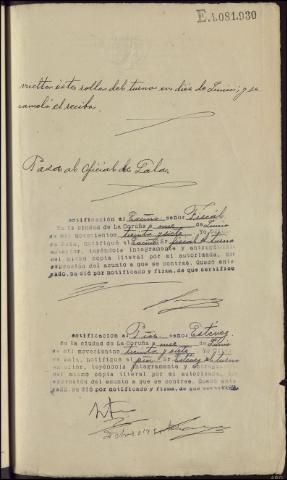 E.4.081.930
vueltos estos rollos del turno en diez de Junio; y se
canceló el recibo.
Pasa al Oficial de Sala.
Notificación al Excmo. señor Fiscal.
En la ciudad de La Coruña a once de Junio
de mil novecientos treinta y siete Yo
de Sala, notifiqué al Excmo. Sr Fiscal el turno
anterior, leyéndole íntegramente y entregándole
del mismo copia literal por mi autorizada, con
expresión del asunto a que se contrae. Quedó ente
rado, se dió por notificado y firma, de que certifico
Notificación al señor Estevez.
En la ciudad de La Coruña a once de Junio
de mil novecientos treinta y siete Yo
de Sala, notifiqué al Sr Estevez el turno
anterior, leyéndole íntegramente y entregándole
del mismo copia literal por mi autorizada, con
expresión del asunto a que se contrae. Quedó ente
rado, se dió por notificado y firma, de que certifico